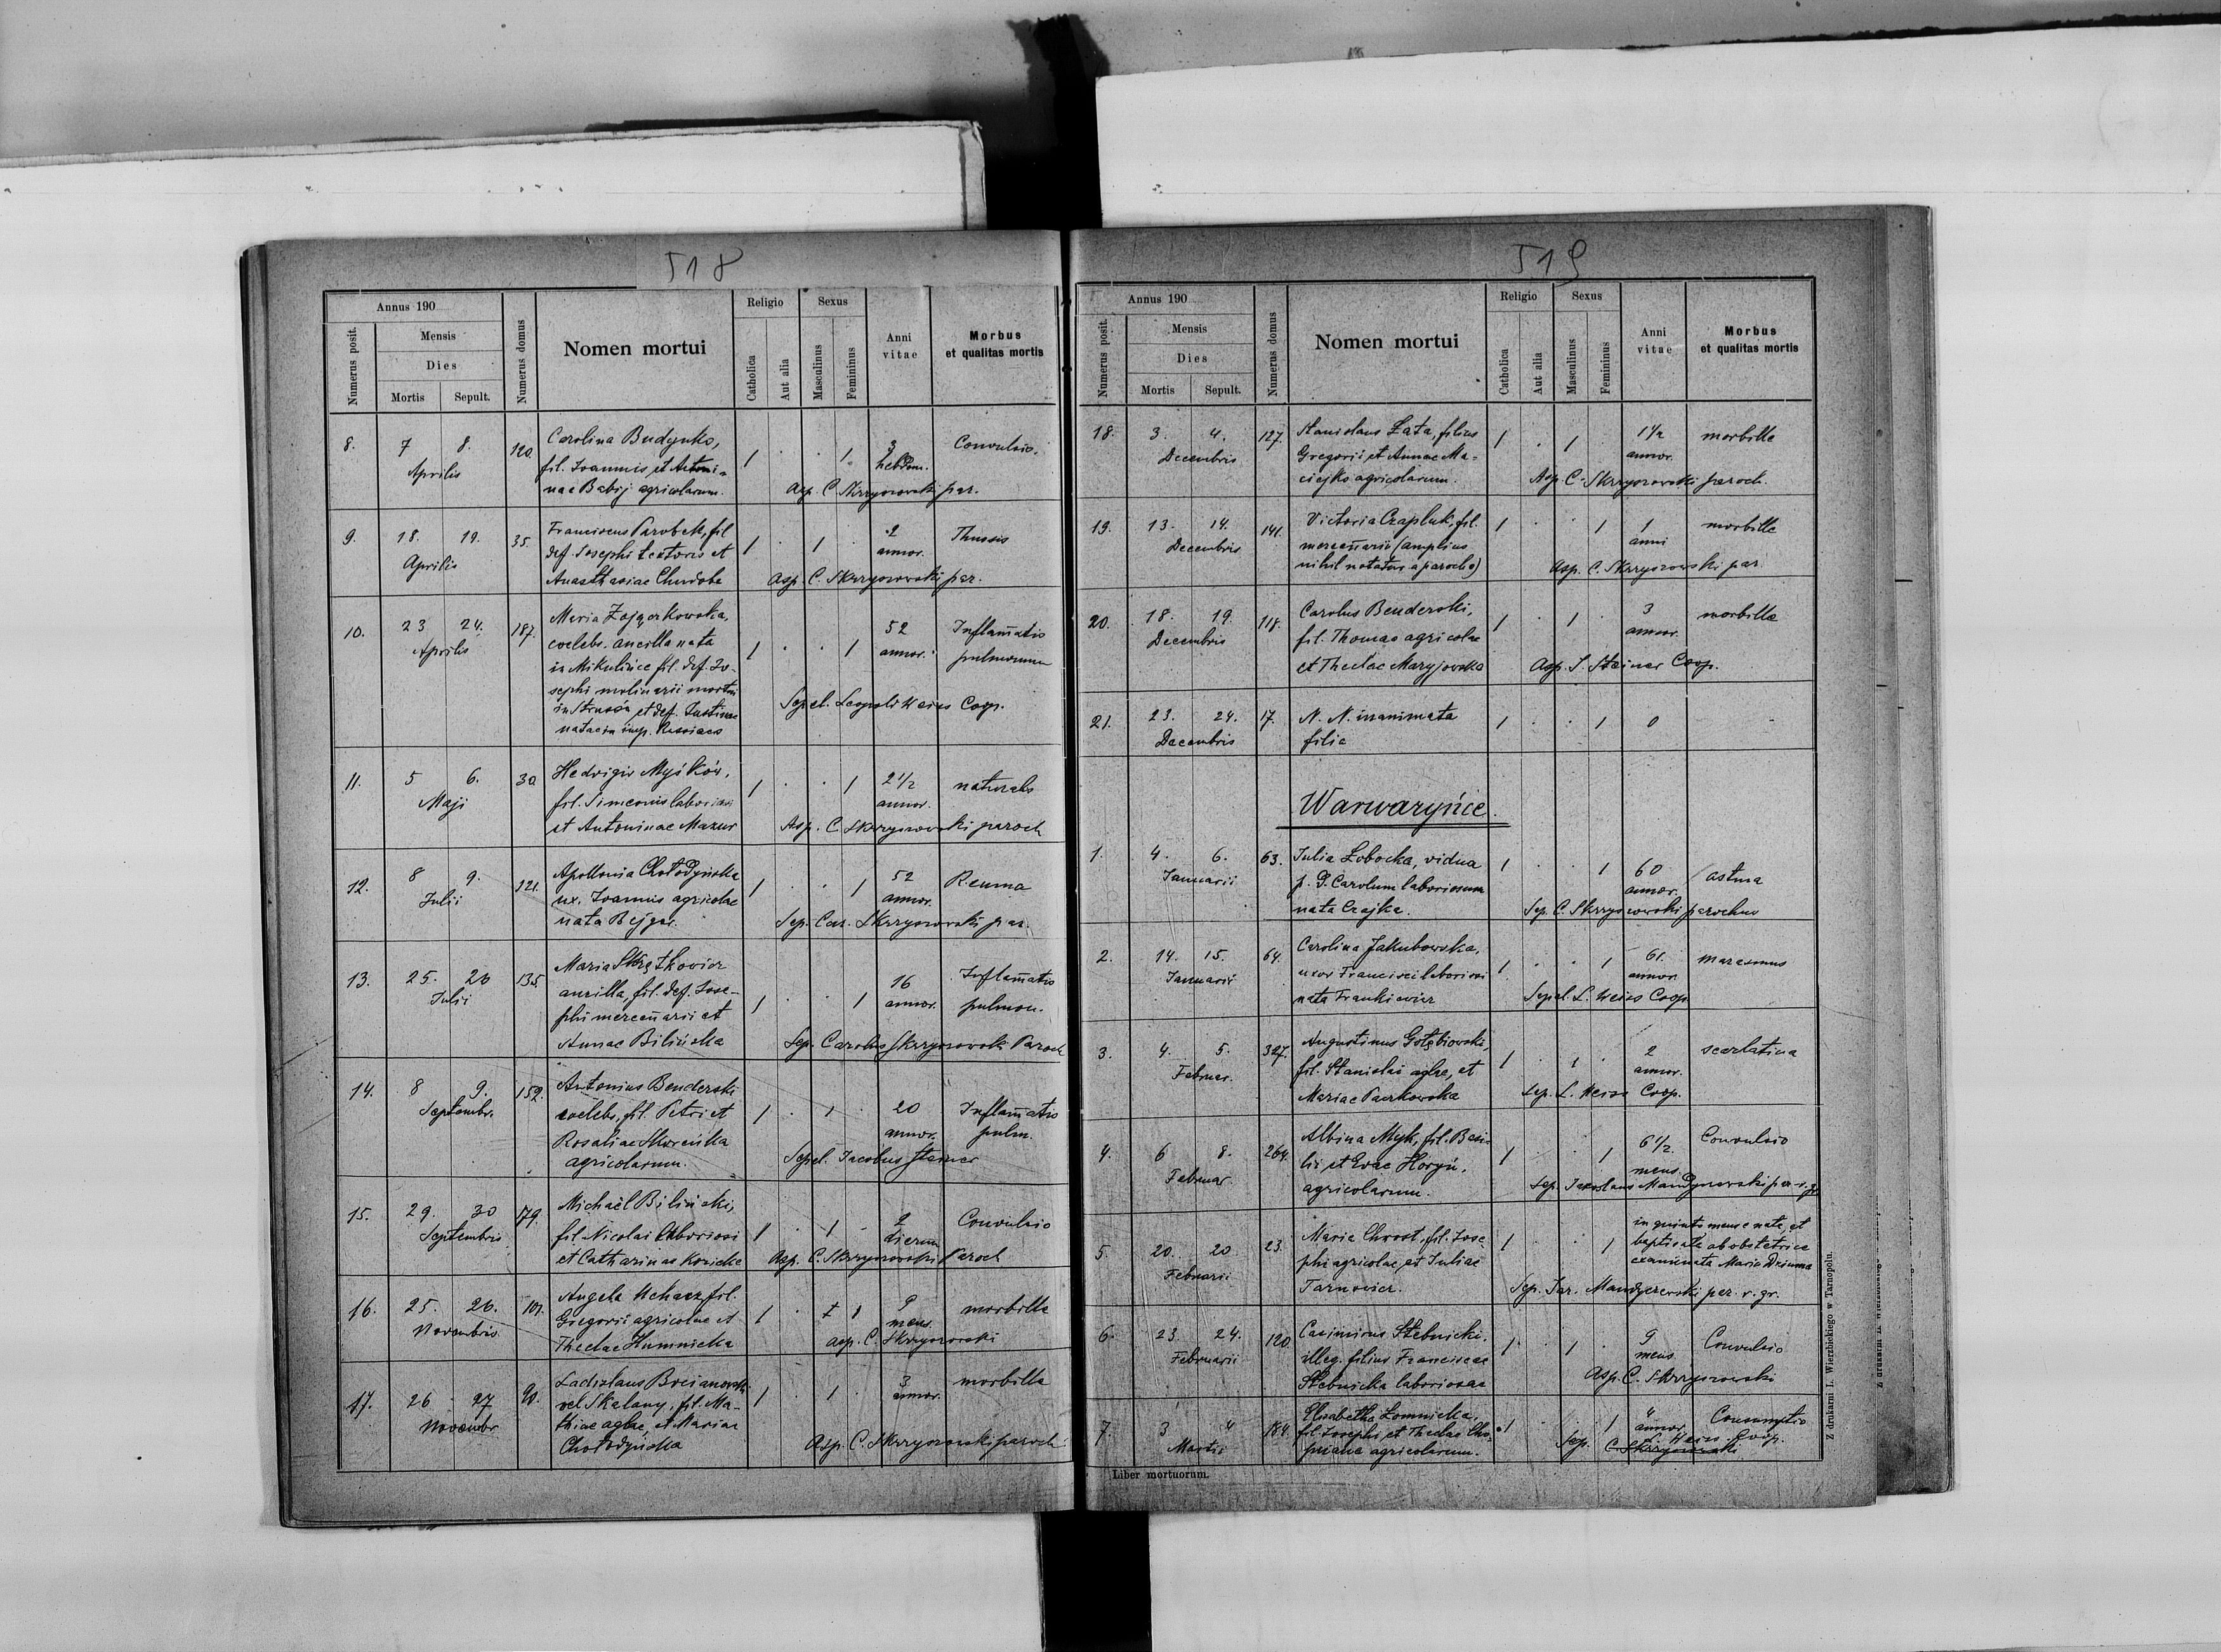 518
Annus 190
Numerus posit.
Mensis
Dies
Mortis Sepult.
Numerus domus
Nomen mortui
Religio
Catholica
Aut alia
Sexus
Masculinus
Femininus
Anni vitae
Morbus et qualitas mortis
8. 7 8. 120. Carolina Budynko, 1 . . 1 3 Convulsio.
Aprilis fil. Joannis et Antoni- hebdom.
nae Babij agricolarum. Asp. C. Skrzyszowski par.
9. 18. 19. 35. Franciscus Parobek, fil 1 . 1 . 2 Thussis
Aprilis def. Josephi textoris et annor.
Anasthasiae Chudoba Asp. C. Skrzyszowski par.
10. 23 24. 187. Maria Zajączkowska, 1 . . 1 52 Inflam̄atio
Aprilis coelebs. ancilla nata annor. pulmonum
in Mikulińce fil. def. Jo-
sephi molinarii mortui Sepel. Leopold Weiss Coop.
in Strusów et def. Justinae
natae in imp. Russiaco
11. 5 6. 30. Hedvigis Myśków, 1 . . 1 2 1/2 naturalis
Maji fil. Simeonis laboriosi annor.
et Antoninae Mazur Asp. C. Skrzyszowski paroch
12. 8 9. 121. Apollonia Chołodyńska 1 . . 1 52 Reuma
Julii ux. Joannis agricolae annor.
nata Bejger. Sep. Car. Skrzyszowski par.
13. 25. 26 135. Maria Skrętkowicz 1 . . 1 16 Inflam̄atio
Julii ancilla, fil. def. Jose- annor. pulmon.
phi mercen̄arii et
Annae Bilińska Sep. Carolus Skrzyszowski Paroch
14. 8 9. 152. Antonius Benderski 1 . 1 . 20 Inflam̄atio
Septembr. coelebs, fil. Petri et annor. pulm.
Rosaliae Skoreńka
agricolarum. Sepel. Jacobus Stainer
15. 29. 30 179. Michaël Biliński, 1 . 1 . 2 Convulsio
Septembris fil. Nicolai laboriosi dierum
et Catharinae Kozicka Asp. C. Skrzyszowski Paroch
16. 25. 26. 101. Angela Uchacz, fil. 1 . 1 9 morbilla
Novembris Gregorii agricolae et mens.
Theclae Humnicka asp. C. Skrzyszowski
17. 26 27 90. Ladislaus 1 . 1 . 3 morbilla
Novembr vel Skalany, fil. Ma- annor.
thiae aglae, et Mariae
Chołodyńska Asp. C. Skrzyszowski paroch
519
Annus 190
Numerus posit.
Mensis
Dies
Mortis Sepult.
Numerus domus
Nomen mortui
Religio
Catholica
Aut alia
Sexus
Masculinus
Femininus
Anni vitae
Morbus et qualitas mortis
18. 3. 4. 127. Stanislaus Łata, filius 1 . 1 1 1/2 morbilla
Decembris Gregorii et Annae Ma- annor.
ciejko agricolarum. Asp. C. Skrzyszowski paroch.
19. 13. 14. 141. Victoria Czapluk, fil. 1 . . 1 1 morbilla
Decembris mercen̄arii (amplius anni
nihil notatum a parocho) Asp. C. Skrzyszowski par.
20. 18. 19. 118. Carolus Benderski, 1 . 1 . 3 morbilla
Decembris fil. Thomas agricolae annor.
et Theclae Maryjowska Asp. J. Stainer Coop.
21. 23. 24. 17. N. N. inanimata 1 . . 1 0 -
Decembris filia
Warwaryńce.
1. 4. 6. 63. Julia Lobocka, vidua 1 . . 1 60 astma
Januarii p. d. Carolum laboriosum annor.
nata Czajka. Sep. C. Skrzyszowski parochus
2. 14. 15. 64. Carolina Jakubowska, 1 . . 1 61. marasmus
Januarii uxor Francisci laboriosi annor.
nata Frankiewicz Sepel. L. Weiss Coop.
3. 4. 5. 327. Augustinus Gołębiowski, 1 . 1 . 2 scarlatina
Februar. fil. Stanislai aglae, et annor.
Mariae Paczkowska Sep. L. Weiss Coop.
4. 6 8. 264. Albina Myk, fil. Basi- 1 . . 1 6 1/2 Convulsio
Februar. lii et Evae Horyń, mens.
agricolarum. Sep. Jaroslaus par. r. gr.
5. 20. 20 23. Maria Chrost, fil. Jose 1 . . 1 in quinto mense nata, et
Februarii phi agricolae, et Juliae baptisata ab obstetrice
Tarnowicz. examinata Maria Dziuma
Sep. Jar. par. r. gr.
6. 23. 24. 120 Casimirus Stebnicki, 1 . 1 . 9 Convulsio
Februarii illeg. filius Franciscae mens.
Stebnicka laboriosae Asp. C. Skrzyszowski
7. 3 4 184. Elisabetha Łomnicka, 1 . . 1 4 Consumptio
Martii fil. Josephi et Theclae annor.
agricolarum. Sep. L. Weiss Coop.
C. Skrzyszowski
Liber mortuorum.
Z drukarni L. Wierzbickiego w Tarnopolu.